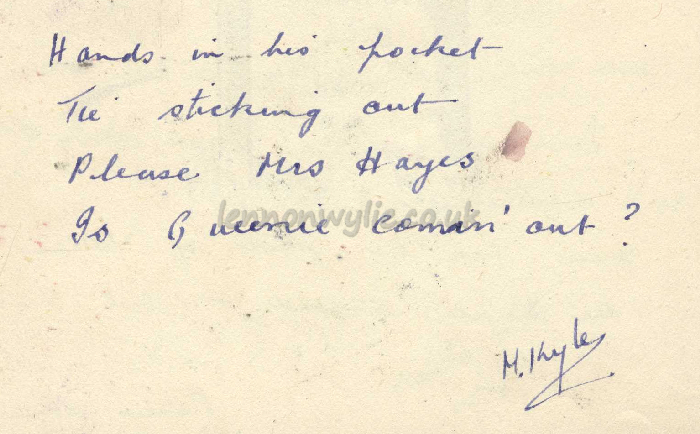 Hands in his pocket
Tie sticking out
Please Mrs Hayes
Is Queenie comin' out?
lennonwylie.co.uk
M. Kyle